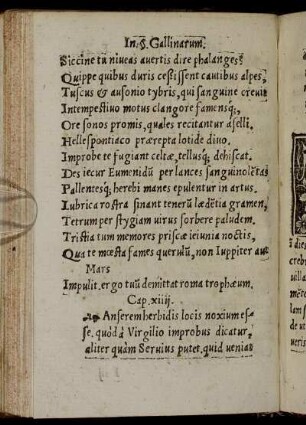 In. §. Gallinarum.
Siccine tu niveas avertis dire phalanges?
Quippe quibus duris cessissent cautibus alpes,
Tuscus & ausonio tybris, qui sanguine crevit
Intempestivo motus clangore famensq;,
Ore sonos promis, quales recitantur aselli.
Hellespontiaco prærepta lotide divo.
Improbe te fugiant celtæ, tellusq; dehiscat.
Des iecur Eumenidũ per lances sanguinolẽtas
Pallentesq; herebi manes epulentur in artus.
Lubrica rostra sinant tenerũ lædẽtia gramen,
Tetrum per stygiam virus sorbere paludem.
Tristia tum memores priscæ ieiunia noctis,
Qua te mœsta fames querulũ, non Iuppiter aut
Mars
Impulit. ergo tuũ demittat roma trophæum.
Cap. xiiij.
Anserem herbidis locis noxium es=
se. quòd à Virgilio improbus dicatur,
aliter quàm Servius putet. quid veniat